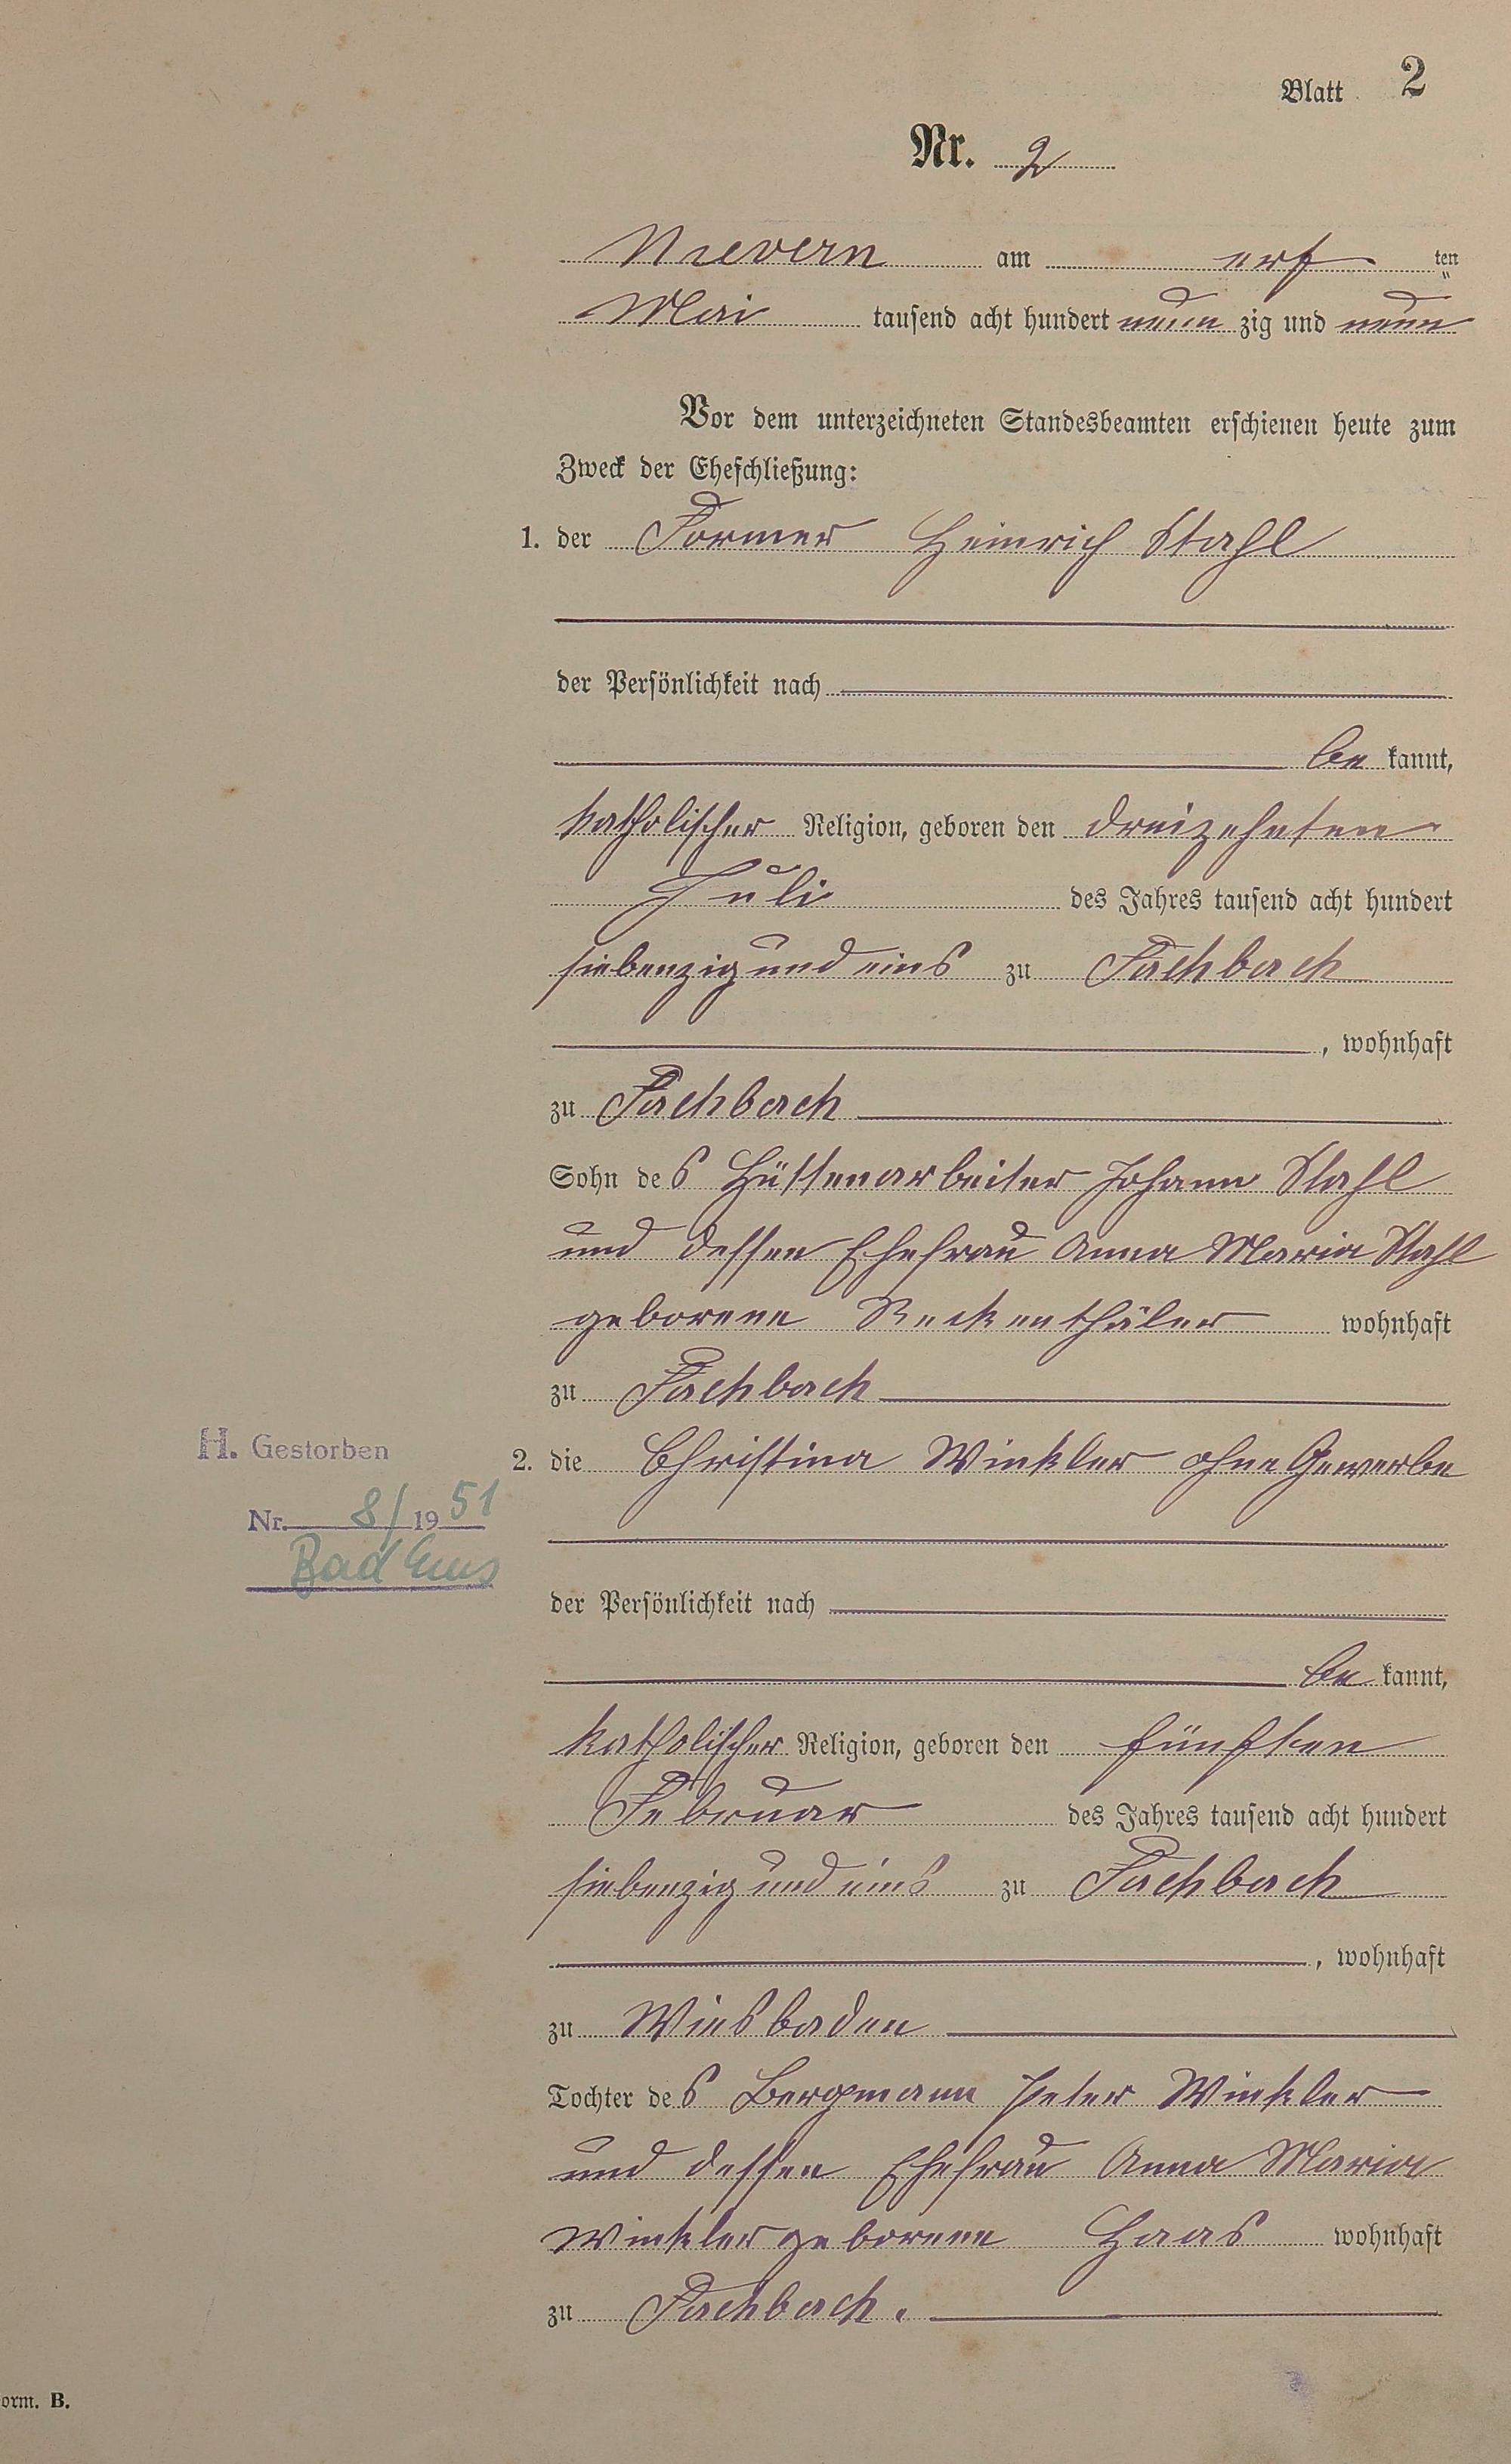 Blatt 2
Nr. 2
Nievern am acht ten
Mai tausend acht hundert neun zig und neun
Vor dem unterzeichneten Standesbeamten erschienen heute zum
Zweck der Eheschließung:
1. der Former Heinrich Stahl
der Persönlichkeit nach
be kannt,
katholischer Religion, geboren den dreizehnten
Juli des Jahres tausend acht hundert
siebenzig und eins zu Fachbach
, wohnhaft
zu Fachbach
Sohn des Hüttenarbeiter Johann Stahl
und dessen Ehefrau Anna Maria Stahl
geborene Reckenthäler wohnhaft
zu Fachbach
H. Gestorben
Nr. 8/1951
Bad Ems
2. die Christina Winkler ohne Gewerbe
der Persönlichkeit nach
be kannt,
katholischer Religion, geboren den fünften
Februar des Jahres tausend acht hundert
siebenzig und eins zu Fachbach
, wohnhaft
zu Wiesbaden
Tochter des Bergmann Peter Winkler
und dessen Ehefrau Anna Maria
Winkler geborene Haas wohnhaft
zu Fachbach.
orm. B.